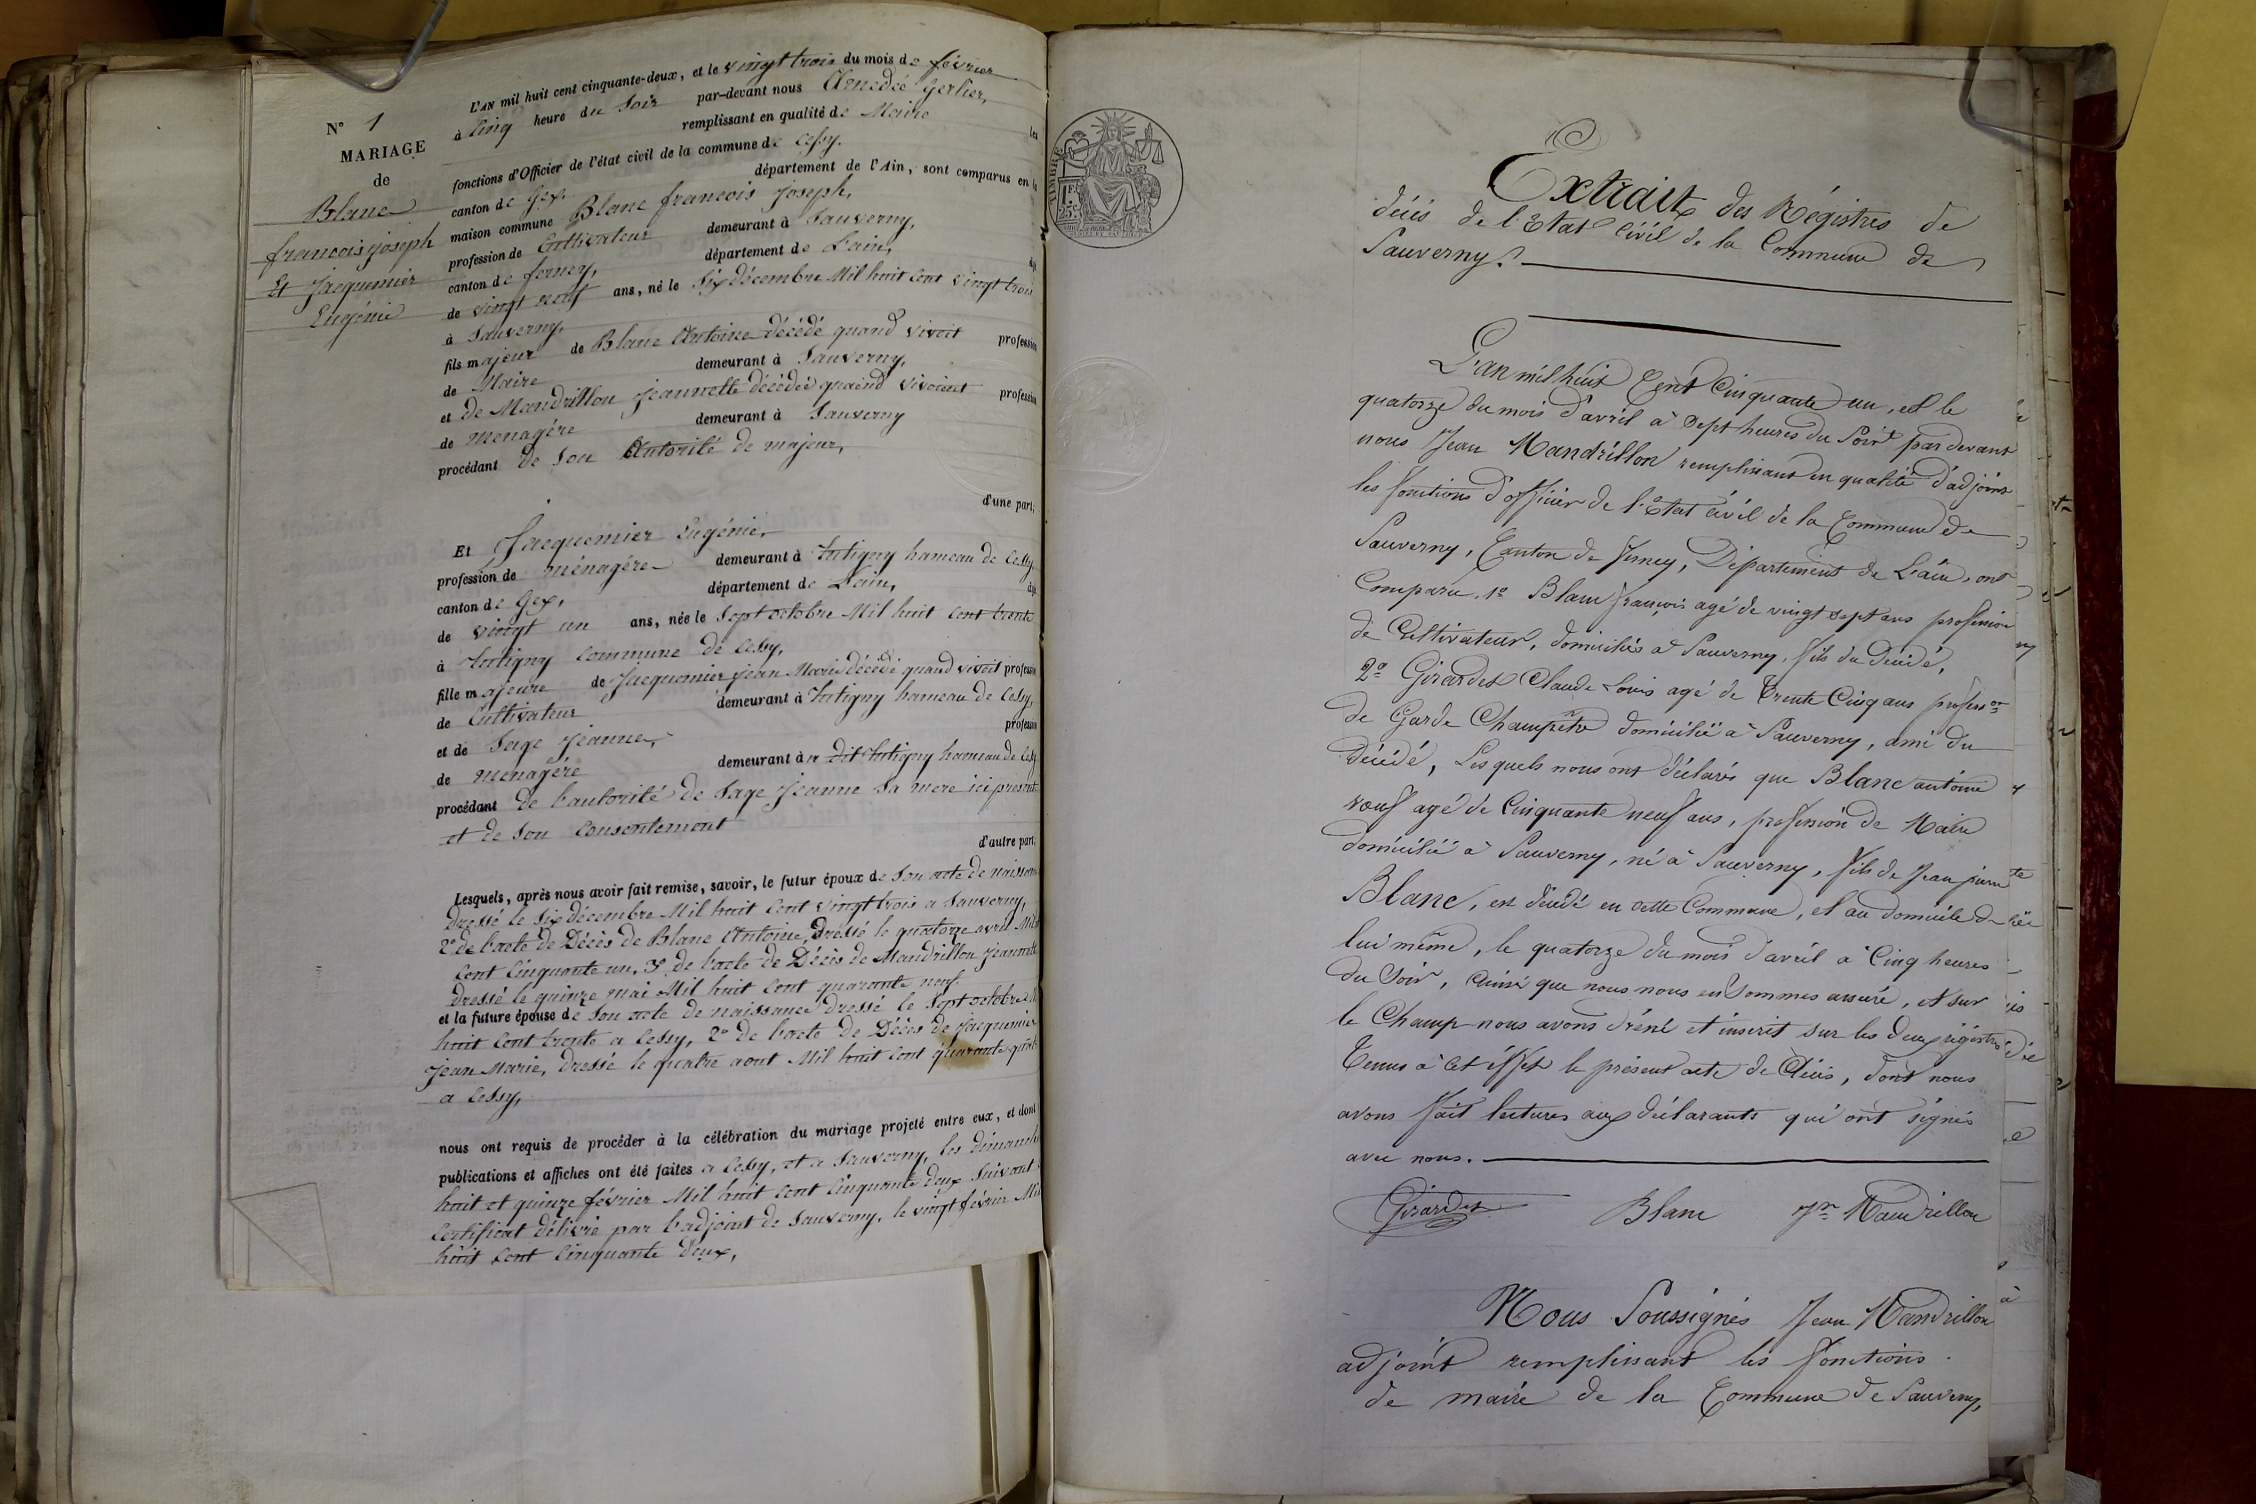 N° 1
MARIAGE
de
Blanc
francois joseph
Et Jacquemier
Eugénie
L'AN mil huit cent cinquante-deux, et le vingt trois du mois de février
à Cinq heure du Soir par-devant nous Amedée Gerlier,
remplissant en qualité de Maire les
fonctions d'Officier de l'état civil de la commune de Cessy.
canton de Gex. département de l'Ain, sont comparus en la
maison commune Blanc francois joseph,
profession de Cultivateur demeurant à Sauverny,
canton de ferney, département de L'ain,
de vingt neuf ans, né le Six décembre Mil huit Cent vingt trois
à Sauverny,
fils majeur de Blanc Antoine décédé quand vivoit profession
de Maire demeurant à Sauverny,
et de Mandrillon Jeannette décédée quand vivoient profession
de menagère demeurant à Sauverny
procédant de Son Autorité de majeur,
d'une part;
Et Jacquemier Eugénie,
profession de ménagère demeurant à Tutigny hameau de Cessy,
canton de Gex, département de L'ain,
de vingt un ans, née le Sept octobre Mil huit Cent trente
à Tutigny Commune de Cessy,
fille majeure de Jacquemier Jean Marie décédé quand vivoit profession
de Cultivateur demeurant à Tutigny hameau de Cessy,
et de Sage Jeanne, profession
de menagére demeurant à Dit Tutigny hameau de Cessy
procédant de L'autorité de Sage Jeanne Sa mere ici présente
et de Son Consentement
d'autre part.
Lesquels, après nous avoir fait remise, savoir, le futur époux de Son acte de naissance
dressé le Six décembre Mil huit Cent vingt trois a Sauverny,
2° de L'acte de Décès de Blanc Antoine, Dressé le quatorze avril Mil
Cent Cinquante un, 3° de L'acte de Décès de Mandrillon Jeannette
Dressé le quinze mai Mil huit Cent quarante neuf.
et la future épouse de Son acte de naissance dressé le Sept octobre
huit Cent trente a Cessy, 2° de L'acte de Décès de Jacquemier
Jean Marie, Dressé le quatre aout Mil huit Cent quarante
a Cessy,
nous ont requis de procéder à la célébration du mariage projeté entre eux, et dont
publications et affiches ont été faites a Cessy, et a Sauverny, les dimanche
huit et quinze février Mil huit Cent Cinquante deux Suivant
Certificat délivré par L'adjoint de Sauverny, le vingt février Mil
huit Cent Cinquante deux,
TIMBRE
1 F.
25 c.
Extrait des Régistres de
décès de l'Etat Civil de la Commune de
Sauverny.
L'an mil huit Cent Cinquante un, et le
quatorze du mois d'avril à Sept heures du Soir par devant
nous Jean Mandrillon remplissant en qualité d'adjoint
les fonctions d'officier de l'Etat Civil de la Commune de
Sauverny, Canton de Ferney, Département de L'ain, ont
Comparu. 1° Blanc françois agé de vingt Sept ans profession
de Cultivateur, domiciliés à Sauverny, fils du décédé,
2° Girardet Claude Louis agé de Trente Cinq ans profession
de Garde Champêtre domicilié à Sauverny, ami du
décédé, Lesquels nous ont déclarés que Blanc antoine
vœuf agé de Cinquante neuf ans, profession de Maire
domicilié à Sauverny, né à Sauverny, fils de Jean pierre
Blanc, est décédé en cette Commune, et au domicile de
lui même, le quatorze du mois d'avril à Cinq heures
du Soir, Ainsi que nous nous en Sommes assuré, et sur
le Champ nous avons dréné et inscrit sur les deux régistres
Tenus à Cet éffet le présent acte de Décès, dont nous
avons fait lectures aux déclarants qui ont signés
avec nous.
Girardet Blanc Jn Mandrillon
Nous Soussignés Jean Mandrillon
adjoint remplissant les fonctions
de maire de la Commune de Sauverny,